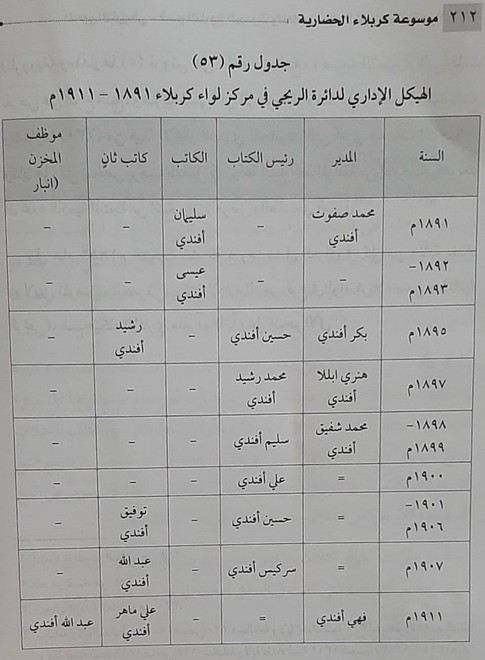 ٢١٢ موسوعة كربلاء الحضارية
جدول رقم (٥٣)
الهيكل الإداري لدائرة الريجي في مركز لواء كربلاء ١٨٩١ – ١٩١١م
السنة | المدير | رئيس الكتاب | الكاتب | كاتب ثانٍ | موظف المخزن (انبار
١٨٩١م | محمد صفوت أفندي | – | سليمان أفندي | – | –
١٨٩٢– ١٨٩٣م | – | – | عيسى أفندي | – | –
١٨٩٥م | بكر أفندي | حسين أفندي | – | رشيد أفندي | –
١٨٩٧م | هنري ابللا أفندي | محمد رشيد أفندي | – | – | –
١٨٩٨– ١٨٩٩م | محمد شفيق أفندي | سليم أفندي | – | – | –
١٩٠٠م | = | علي أفندي | – | – | –
١٩٠١– ١٩٠٦م | = | حسين أفندي | – | توفيق أفندي | –
١٩٠٧م | = | سركيس أفندي | – | عبد الله أفندي | –
١٩١١م | فهي أفندي | = | – | علي ماهر أفندي | عبد الله أفندي